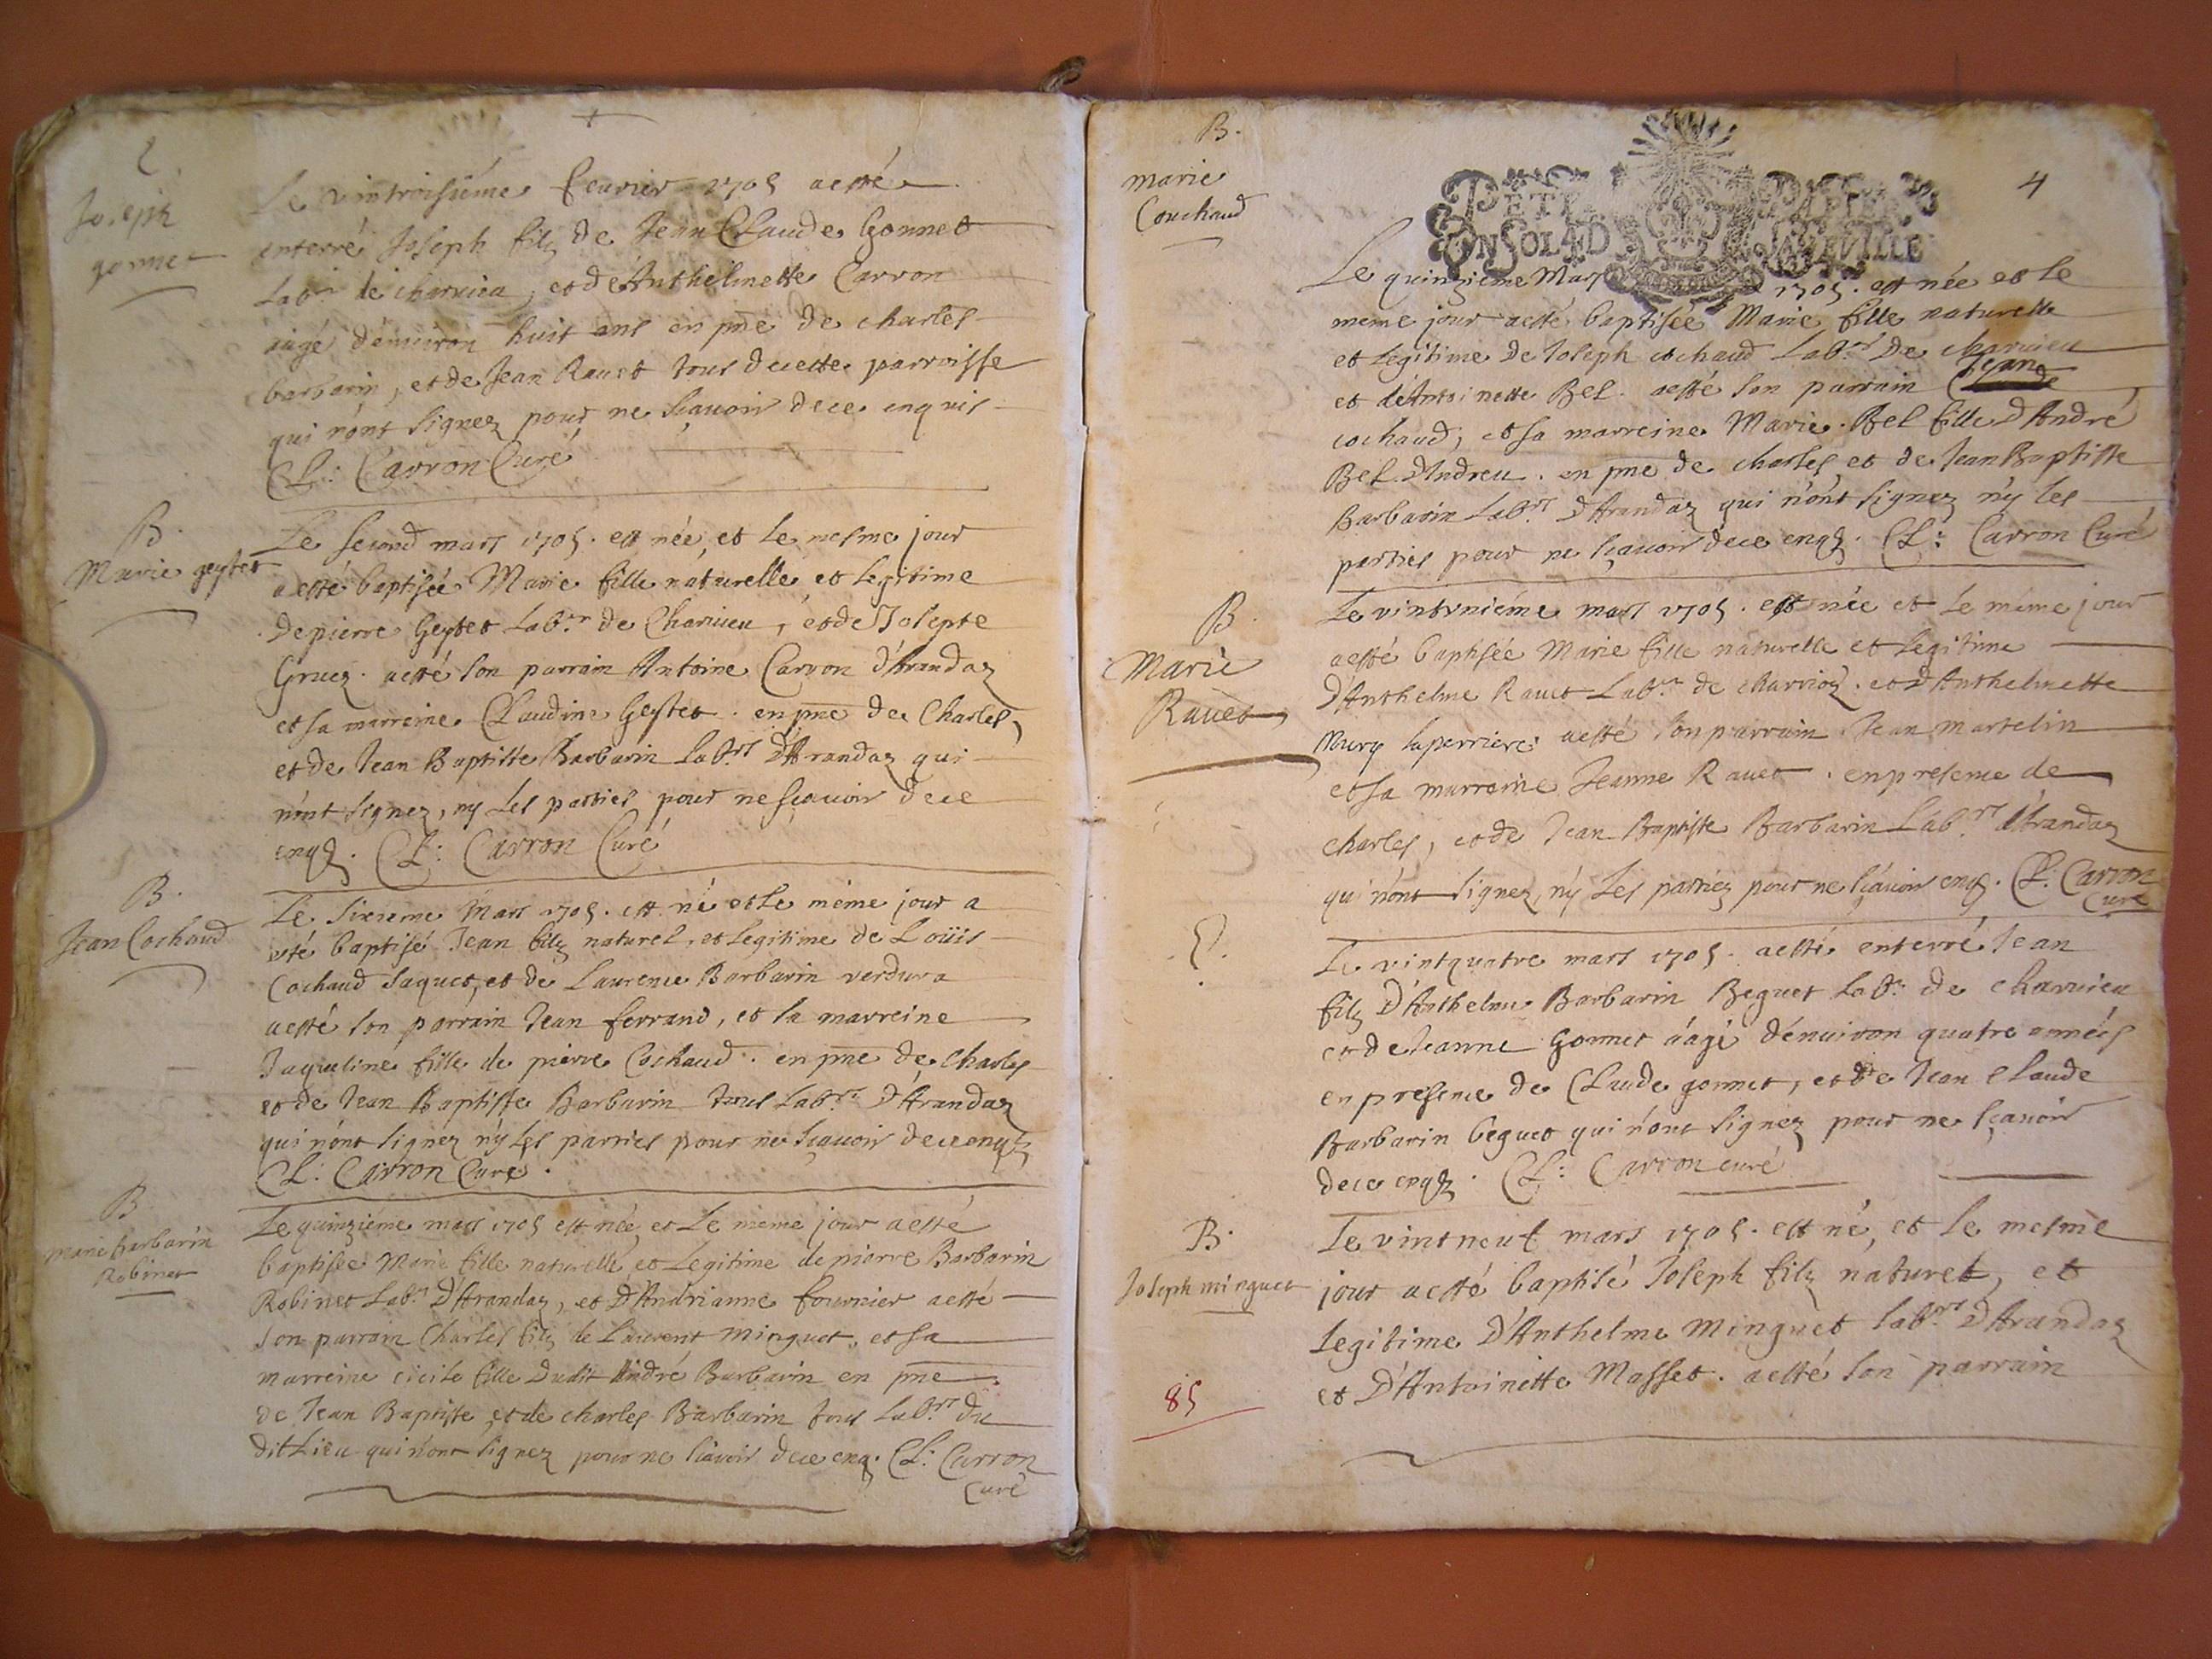 Joseph
gonnet
Le vintroisiéme feurier 1705 aesté
enterré Joseph filz de Jean Claude Gonnet
Labr. de charuieu, et de Anthelmette Carron
aagé denuiron huit ans en pñe de charles
barbarin, et de Jean Rauet tous decette parroisse
qui nont signez pour ne sçauoir dece enquis
Cl: Carron Curé
B.
Marie geytet
Le second mars 1705. est née, et le mesme jour
aesté baptisée Marie fille naturelle et legitime
de pierre Geytet Labr. de Charuieu, et de Josepte
Gruez. aesté son parrain Antoine Carron d'Arandaz
et sa marreine Claudine Geytet. en pñe de Charles,
et de Jean Baptiste Barbarin Labrs. d'Arandaz qui
n'ont signez, ny les parties pour ne sçauoir dece
enqz. Cl: Carron Curé
B.
Jean Cochaud
Le sixieme Mars 1705. est né et le méme jour a
esté baptisé Jean filz naturel, et legitime de Loüis
Cochaud Jaquet, et de Laurence Barbarin verdura
aesté son parrain Jean ferrand, et la marreine
Jaqueline fille de pierre Cochaud. en pñe de charles
et de Jean Baptiste Barbarin tous Labrs. d'Arandaz
qui n'ont signez n'y les parties pour ne sçauoir dece enqz
Cl. Carron Curé.
B
Marie barbarin
Robinet
Le quinziéme mars 1705 est née, et le méme jour aesté
baptisée Marie fille naturelle et Legitime de pierre Barbarin
Robinet Labr. d'Arandaz, et d'Andrianne fournier aesté
son parrain Charles filz de Laurent Minguet, et sa
marreine cicile fille dudit André Barbarin en pñe
de Jean Baptiste, et de charles Barbarin tous Labrs. du
dit Lieu qui n'ont signez pour ne sçauoir dece enq. Cl: Carron
Curé
B.
marie
Couchaud
4
PETIT PAPIER
UN SOL 4 D LA FEVILLE
Le quinzieme Mars 1705. est née et le
meme jour aesté baptisée Marie fille naturelle
et legitime de Joseph cochaud Labr. de charuieu
et d'Antoinette Bel. aesté son parrain Jean
cochaud, et sa marreine Marie Bel fille d'André
Bel d'Indrieu. en pñe de charles et de Jean Baptiste
Barbarin Labrs. d'Arandaz qui n'ont signez n'y les
parties pour ne sçauoir dece enqz. Cl: Carron Curé
B.
Marie
Rauet
Le vintvniéme mars 1705. est née et le méme jour
aesté baptisée Marie fille naturelle et legitime
d'Anthelme Rauet Labr. de charuioz. et d'Anthelmette
Mury laperriere aesté son parrain Jean martelin
et sa marraine Jeanne Rauet. en presence de
charles, et de Jean Baptiste Barbarin Labrs. d'Arandaz
qui n'ont signez n'y les partiez pour ne sçauoir enqz. Cl. Carron
Curé
Le vintquatre mars 1705. aesté enterré Jean
filz d'Anthelme Barbarin Beguet Labr. de charuieu
et de Jeanne Gonnet aagé denuiron quatre années
en presence de Claude gonnet, et de Jean Claude
Barbarin beguet qui n'ont signez pour ne sçauoir
dece enqz. Cl: Carron curé
B.
Joseph minguet
Le vintneuf mars 1705. est né, et le mesme
jour aesté baptisé Joseph filz naturel, et
legitime d'Anthelme Minguet Labrs. d'Arandaz
et d'Antoinette Masset. aesté son parrain
85